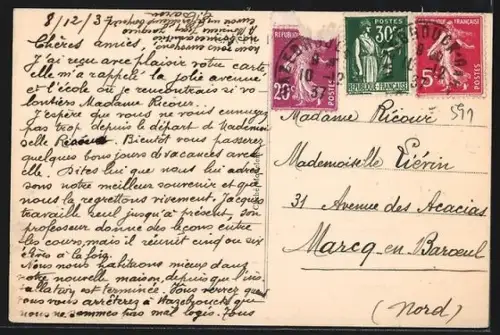 8/12/37
Chères amies,
J'ai reçu avec plaisir votre carte
elle m'a rappelé la jolie avenue
et l'école où je rencontrais si vo
lontiers Madame Ricour.
J'espère que vous ne vous ennuyez
pas trop depuis le départ de Mademoi
selle Ricour. Bientôt vous passerez
quelques bons jours de vacances avec
elle. Dites lui que nous lui adres
sons notre meilleur souvenir et que
nous la regrettons vivement. Jacques
travaille seul jusqu'à présent, son
professeur donne des leçons entre
les cours, mais il réunit cinq ou six
élèves à la fois.
Nous nous habituons mieux dans
notre nouvelle maison, depuis que l'ins
tallation est terminée. Vous verrez que
vous vous arrêterez à Hazebrouck que
nous ne sommes pas mal logés. Vous
20c
POSTES
POSTES
30c
REPUBLIQUE FRANÇAISE
5c
POSTES
HAZEBROUCK
10-12
37
Madame Ricour
591
Mademoiselle Piérin
31 Avenue des Acacias
Marcq-en-Baroeul
(Nord)